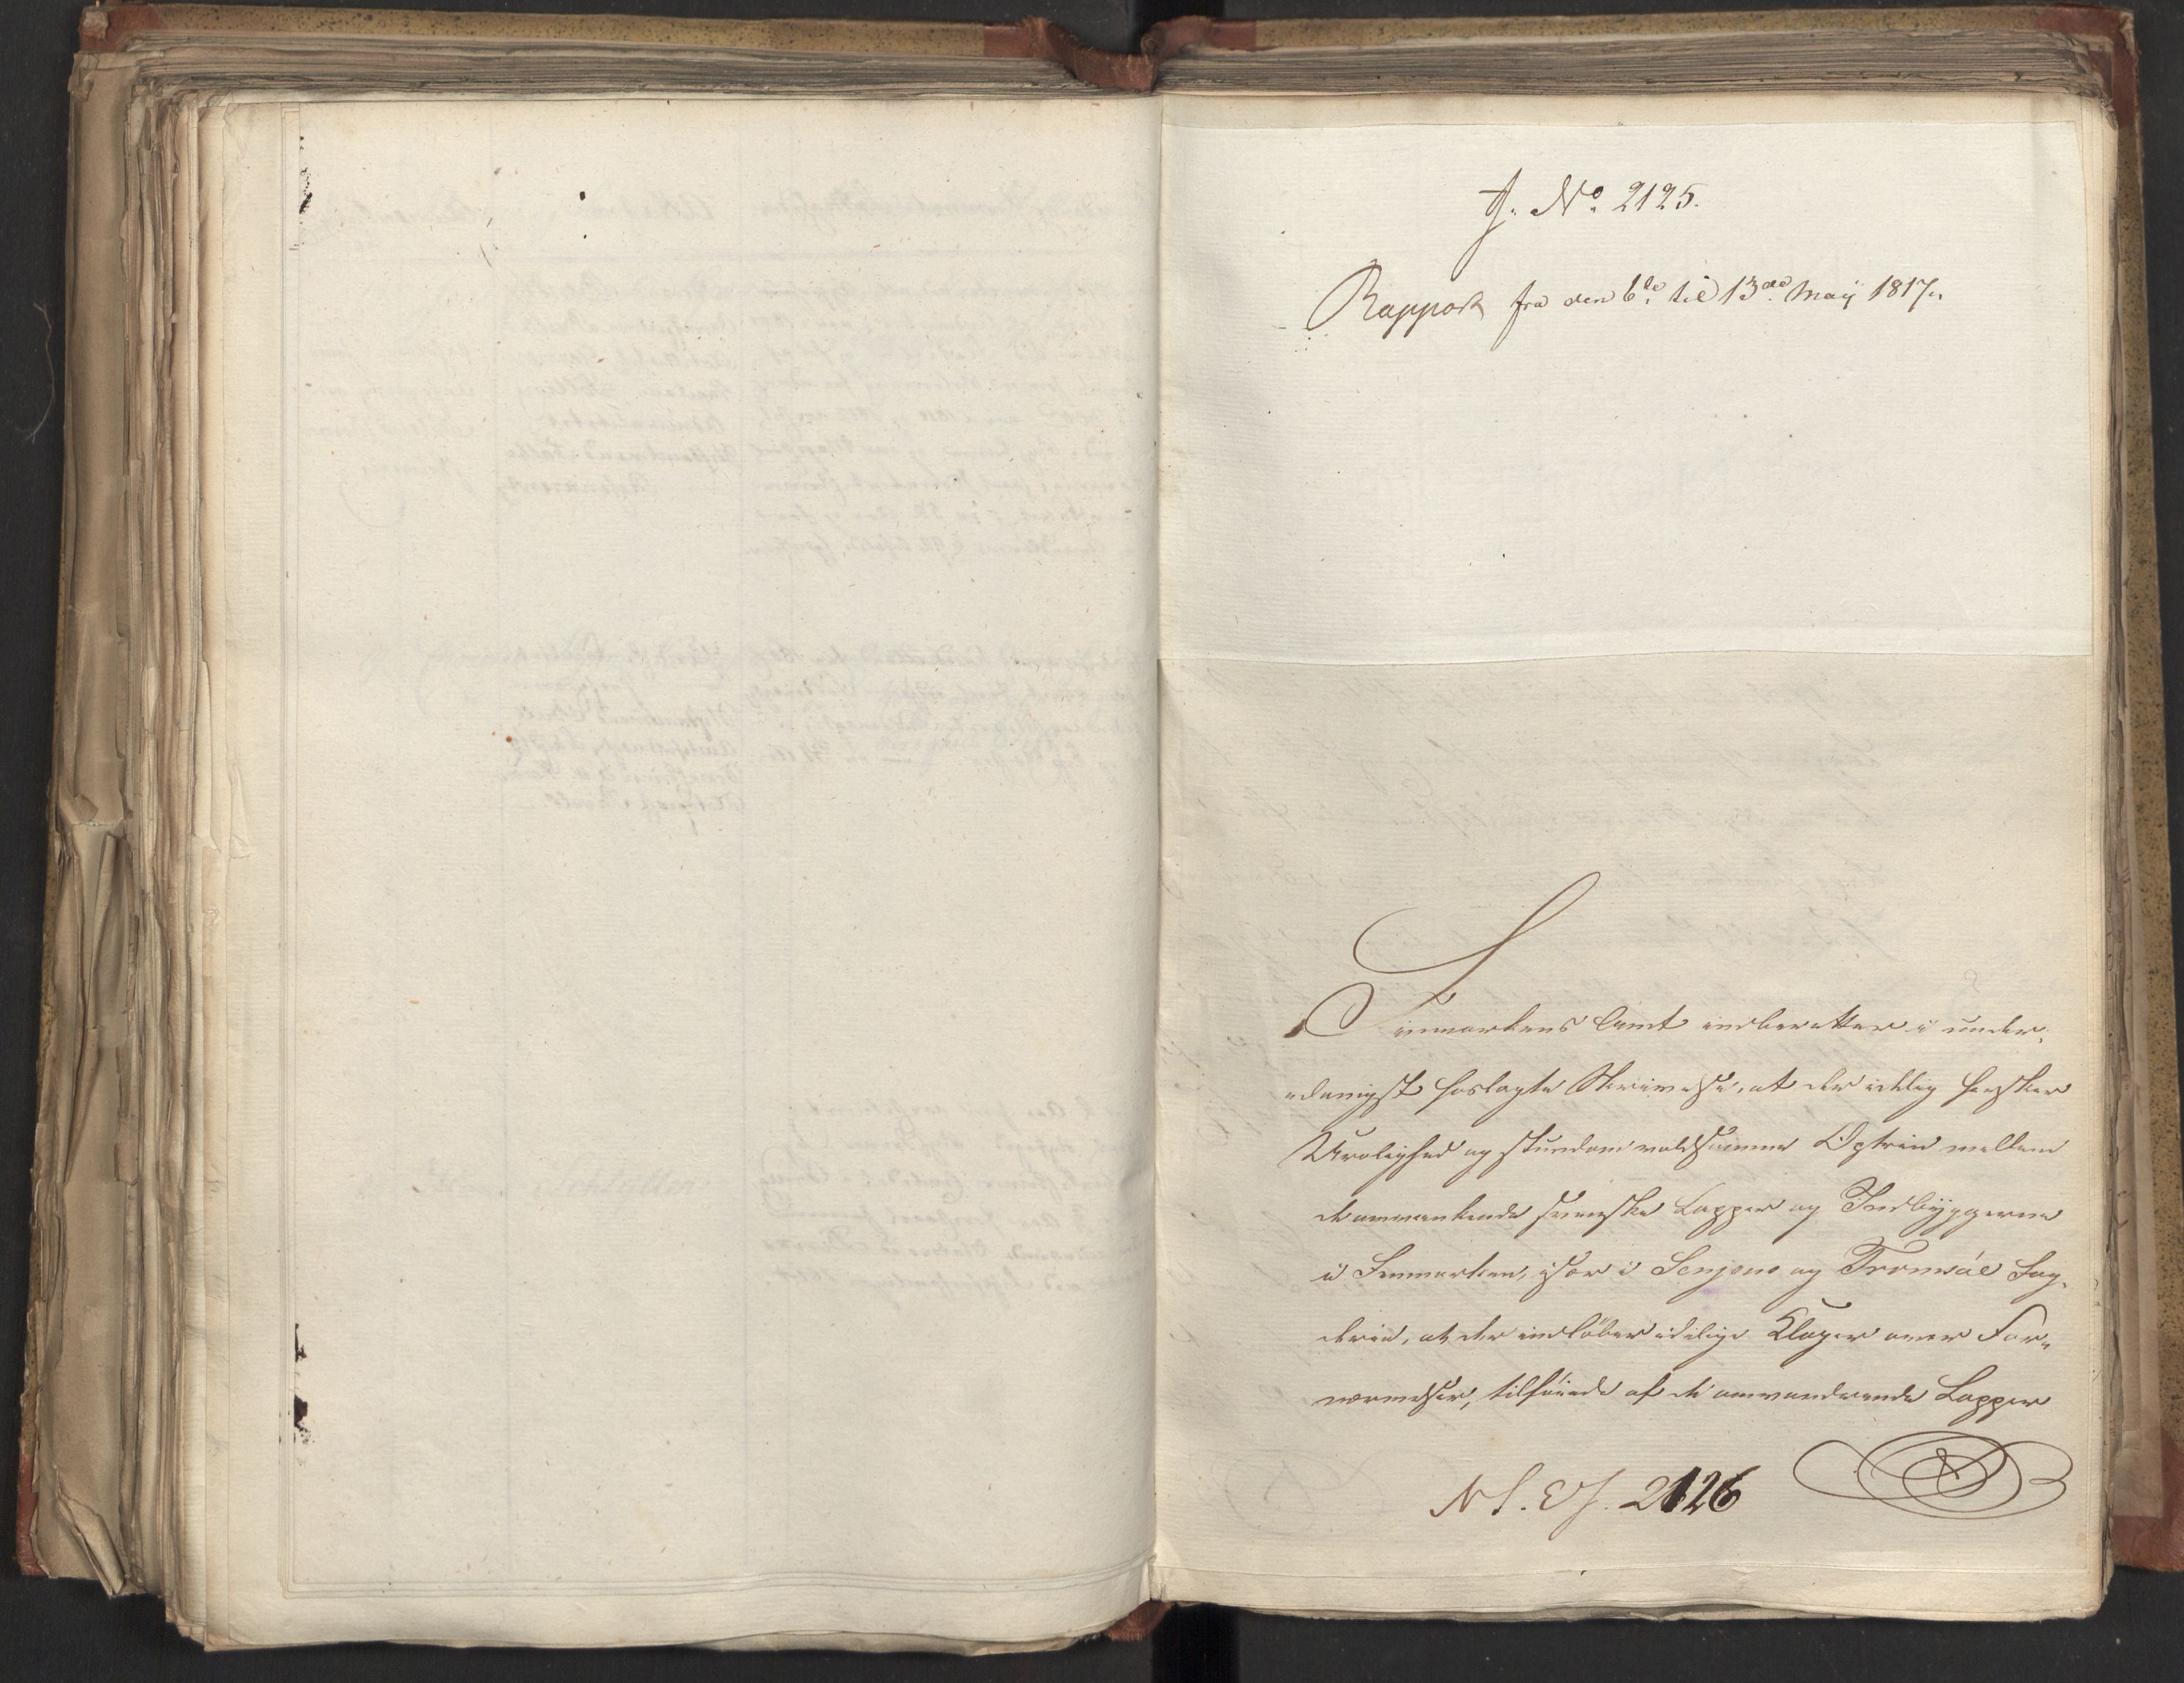 J. No. 2125.
Rapport fra den 6te til 13de Maÿ 1817.
Finmarkens Amt indberetter i under-
danigst hoslagte Skrivelse, at der idelig hersker
Urolighed og stundom voldsomme Optrin mellem
de omvankende svenske Lapper og Indbÿggerne
i Finmarken, især i Senjens og Tromsøe Fog-
derie, at der indløber idelige Klager over For-
nærmelser, tilføiede af de omvandrende Lapper
2126